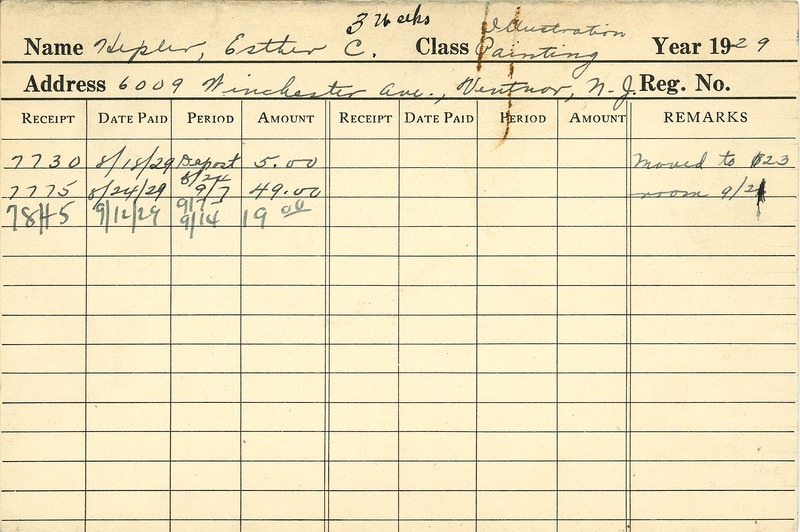 3 weeks
Illustration
Name Hepler, Esther C. Class Painting Year 1929
Address 6009 Winchester Ave., Ventnor, N.J. Reg. No.
RECEIPT DATE PAID PERIOD AMOUNT RECEIPT DATE PAID PERIOD AMOUNT REMARKS
7730 8/18/29 Depost 5.00 Moved to $23
7775 8/24/29 8/24 9/7 49.00 room 9/2
7845 9/12/29 9/7- 9/14 19 00